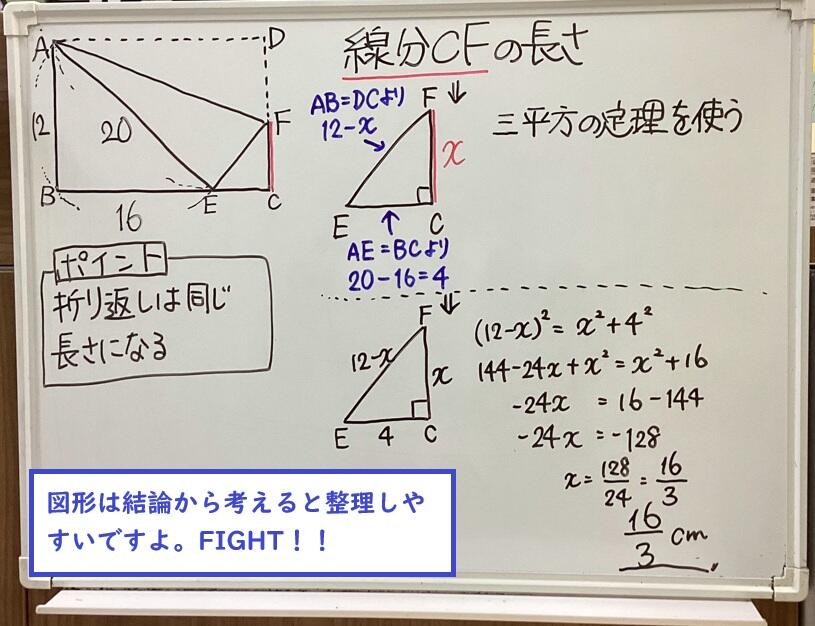 A
D
12
20
F
B
E
C
16
ポイント
折り返しは同じ
長さになる
線分CFの長さ
⇓
AB=DCより
12-x
F
x
E
C
AE=BCより
20-16=4
三平方の定理を使う
⇓
F
12-x
x
E
4
C
(12-x)²=x²+4²
144-24x+x²=x²+16
-24x=16-144
-24x=-128
x=128/24=16/3
16/3 cm
図形は結論から考えると整理しや
すいですよ。FIGHT！！